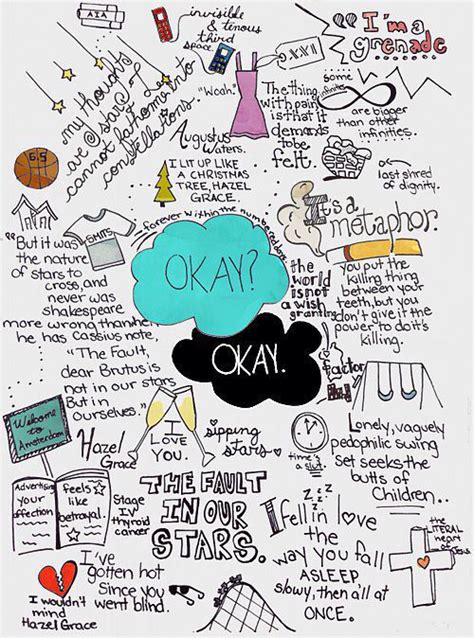 invisible
& tenous
third
space.
I'm a
grenade
5.XX11
my thoughts
are stars I
cannot fathom into
constellations.
"Woah."
The thing
with pain
is that it
demands
to be
felt.
some
infinities
are bigger
than other
infinities.
Augustus
Waters.
6.5
I LIT UP LIKE
A CHRISTMAS
TREE, HAZEL
GRACE.
last shred
of dignity.
SMITS
forever within the numbered days
It's a
metaphor.
"But it was
the nature
of stars to
cross, and
never was
Shakespeare
more wrong than when
he has Cassius note,
"The Fault,
dear Brutus is
not in our stars
But in
ourselves."
OKAY?
OKAY.
the
world
is not
a wish
granting
factory
you put the
killing thing
between your
teeth, but you
don't give it the
power to do its
killing.
Welcome
to
Amsterdam
Hazel
Grace
I
Love
You.
sipping
stars
time's
a slut.
Lonely, vaguely
pedophilic swing
set seeks the
butts of
Children..
Advertising
your
affection
feels
like
betrayal.
Stage
IV
thyroid
cancer
THE FAULT
IN OUR
STARS.
z z z
I fell in love
the
way you fall
ASLEEP
slowy, then all at
ONCE.
the LITERAL
heart
of
Jesus
I've
gotten hot
Since you
went blind.
I wouldn't
mind
Hazel Grace